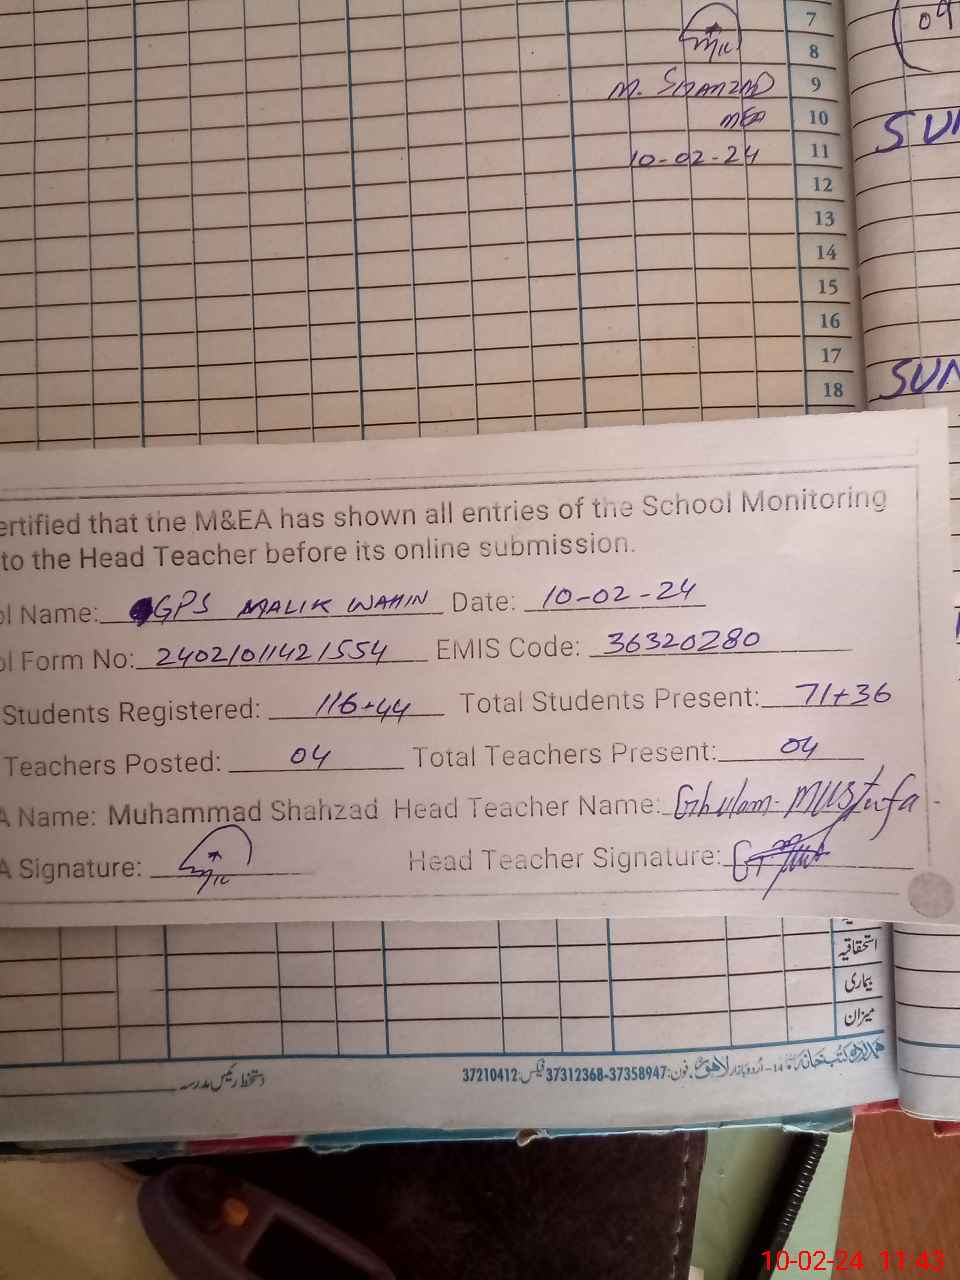 7
8
M. SHAHZAD 9
MEA 10
10-02-24 11
12
13
14
15
16
17
18
09
SUN
SUN
ertified that the M&EA has shown all entries of the School Monitoring
to the Head Teacher before its online submission.
ol Name: GPS MALIK WAHIN Date: 10-02-24
ol Form No: 24021011421554 EMIS Code: 36320280
Students Registered: 116+44 Total Students Present: 71+36
Teachers Posted: 04 Total Teachers Present: 04
A Name: Muhammad Shahzad Head Teacher Name: Ghulam Mustufa
A Signature: Head Teacher Signature:
استحقاقیہ
بیماری
میزان
دستخط رئیس مدرسہ
ہمدرد کتب خانہ 14-اُردو بازار لاہور فون:37358947-37312368 فیکس:37210412
10-02-24 11:43